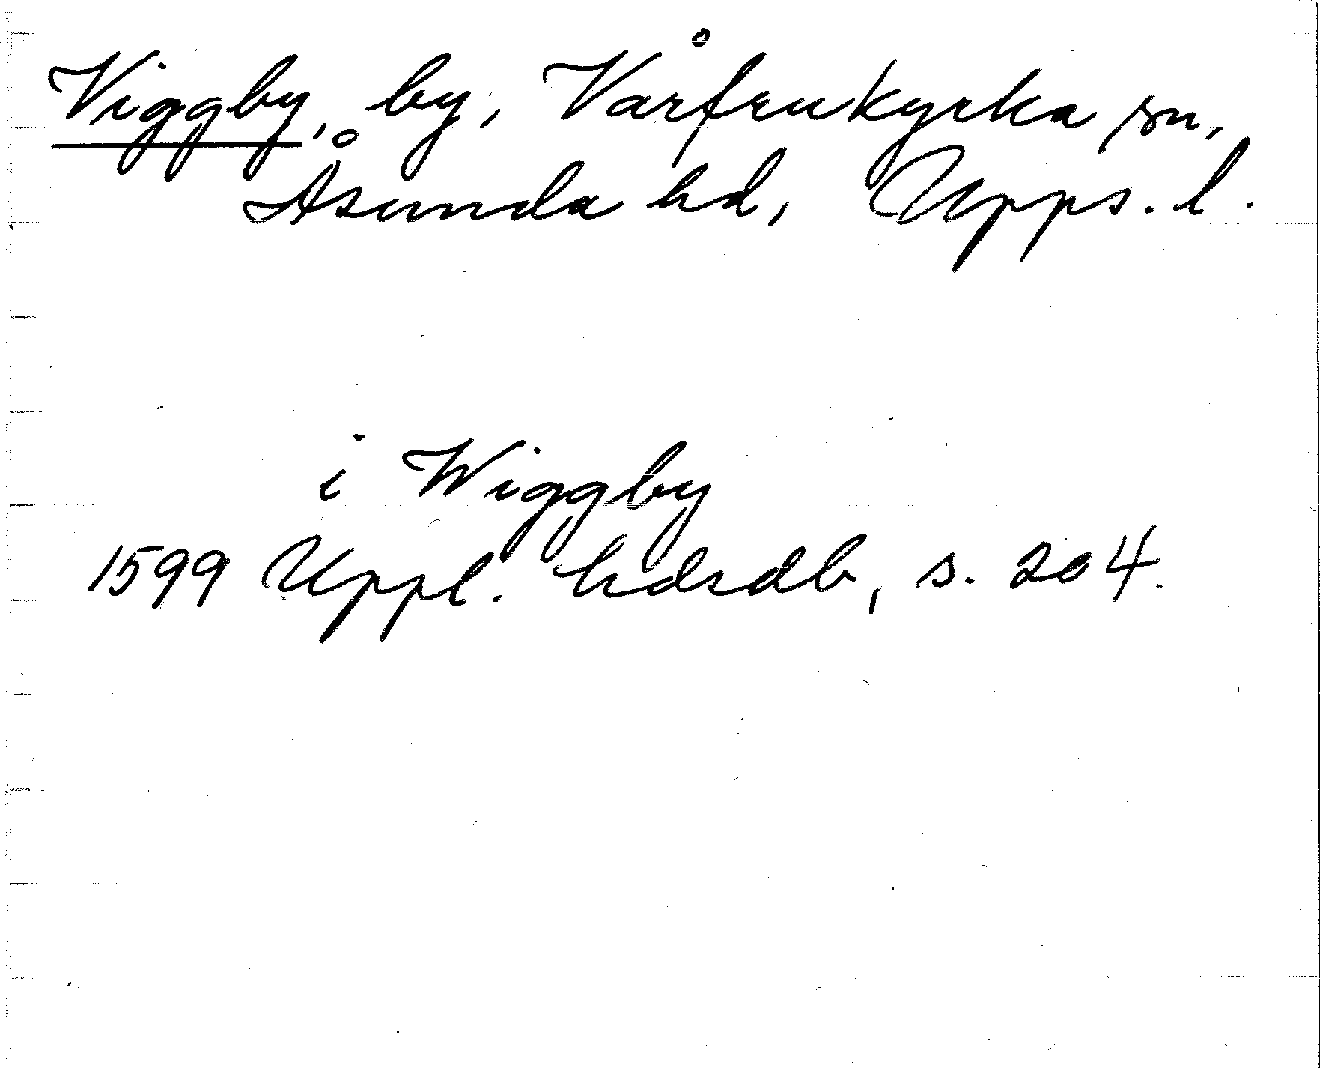 Viggby, by, Vårfrukyrka sn,
Åsunda hd, Upps. l.
i Wiggby
1599 Uppl. hdsdb, s. 204.